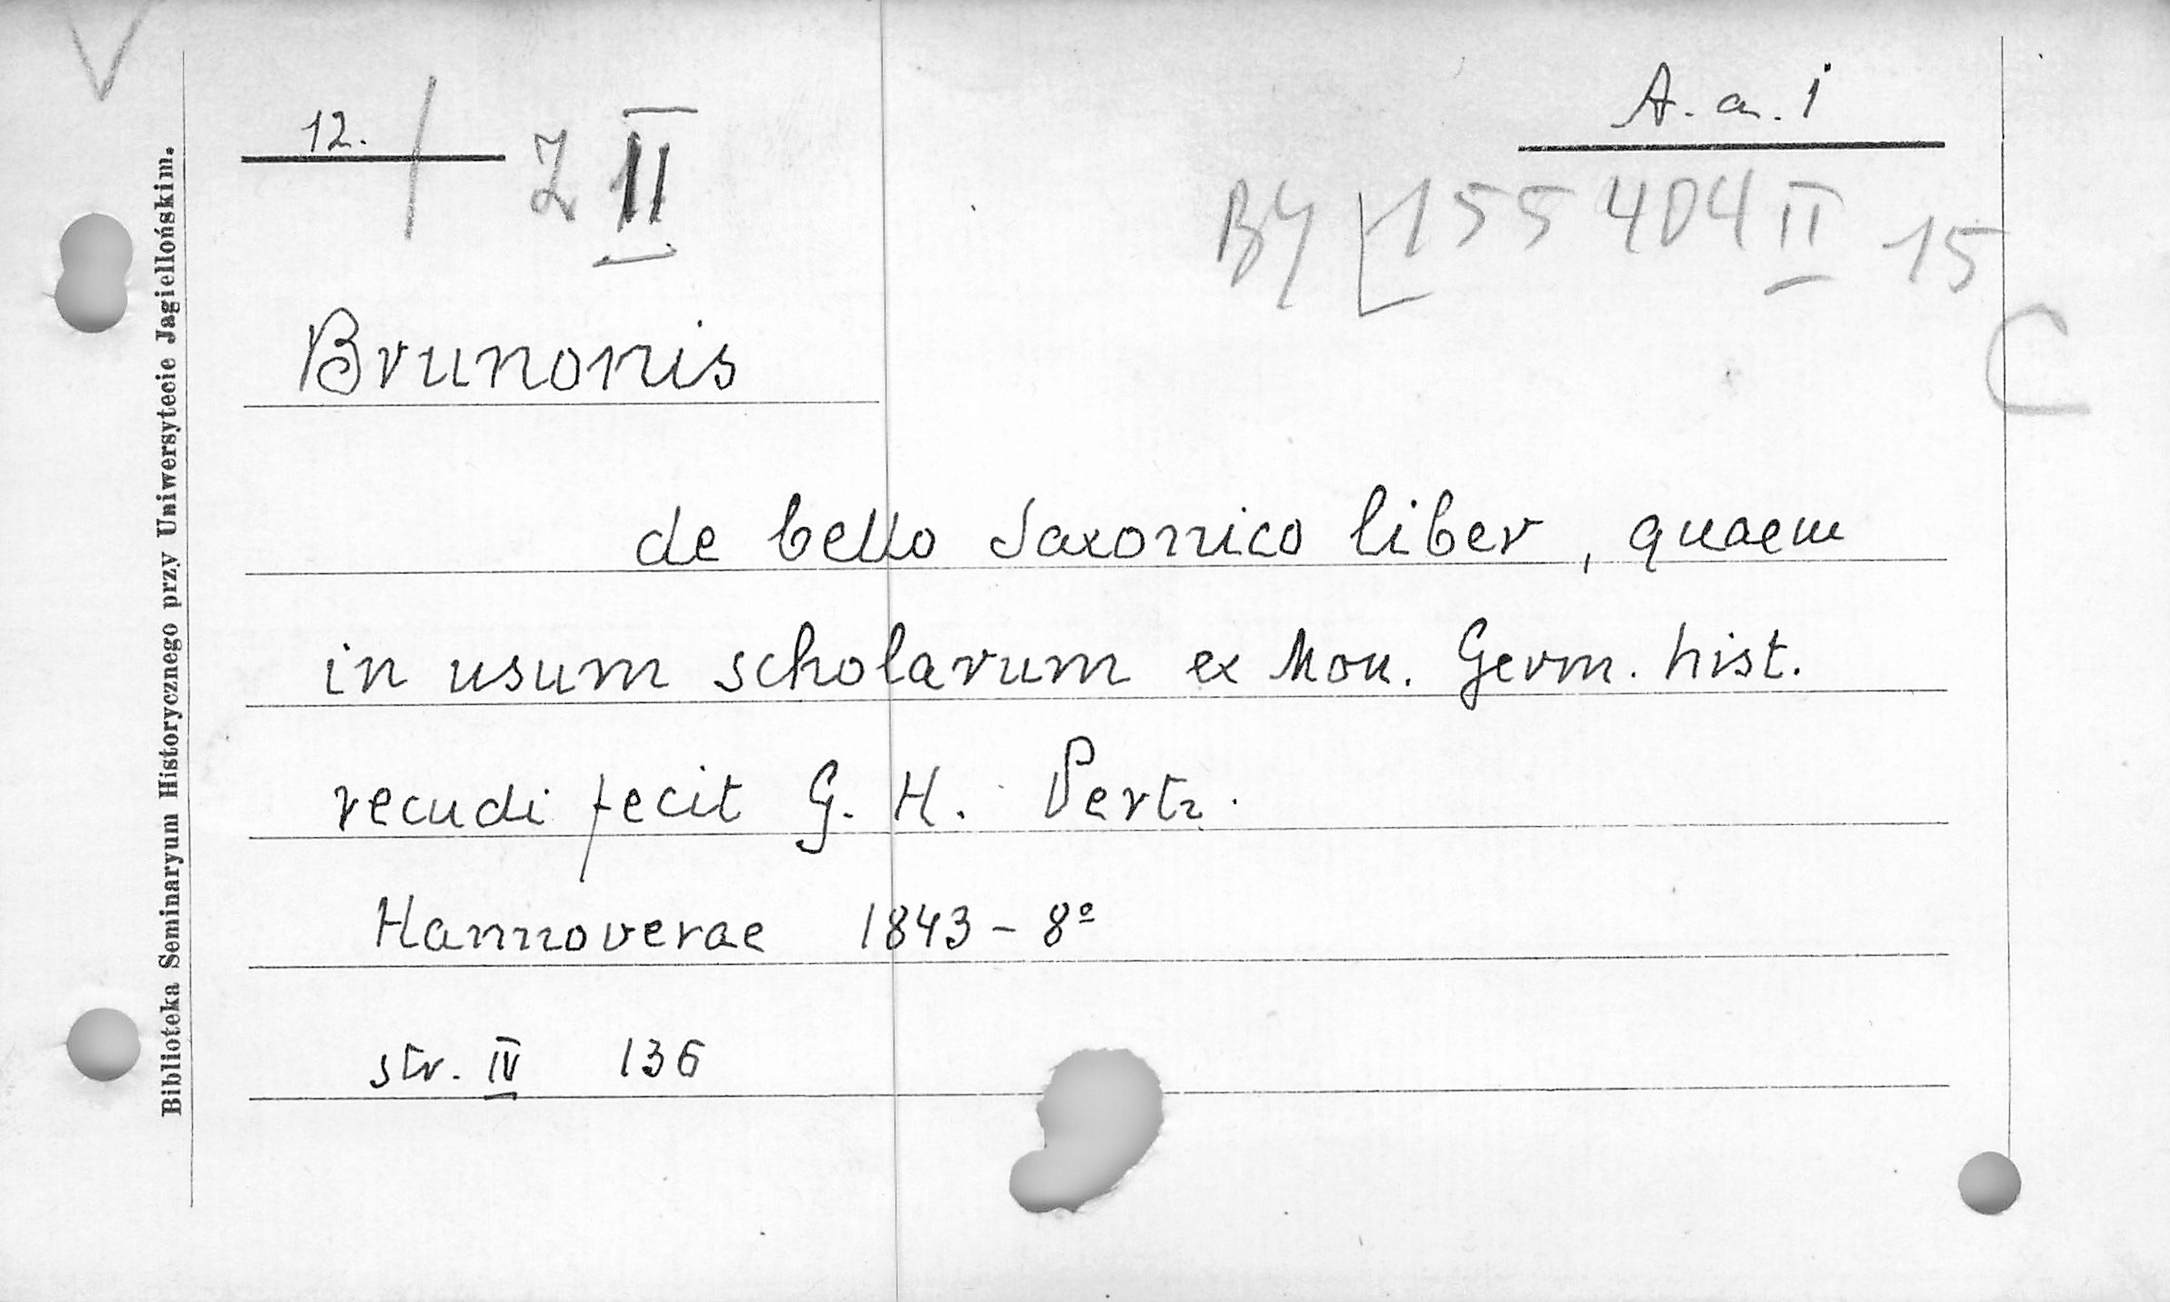 V
12. / Z II
A. a. 1
BY 155404 II 15
C
Brunonis
de bello Saxonico liber, quaem
in usum scholarum ex Mon. Germ. hist.
recudi fecit G. H. Pertz.
Hannoverae 1843 – 8º
str. IV 136
Biblioteka Seminaryum Historycznego przy Uniwersytecie Jagiellońskim.